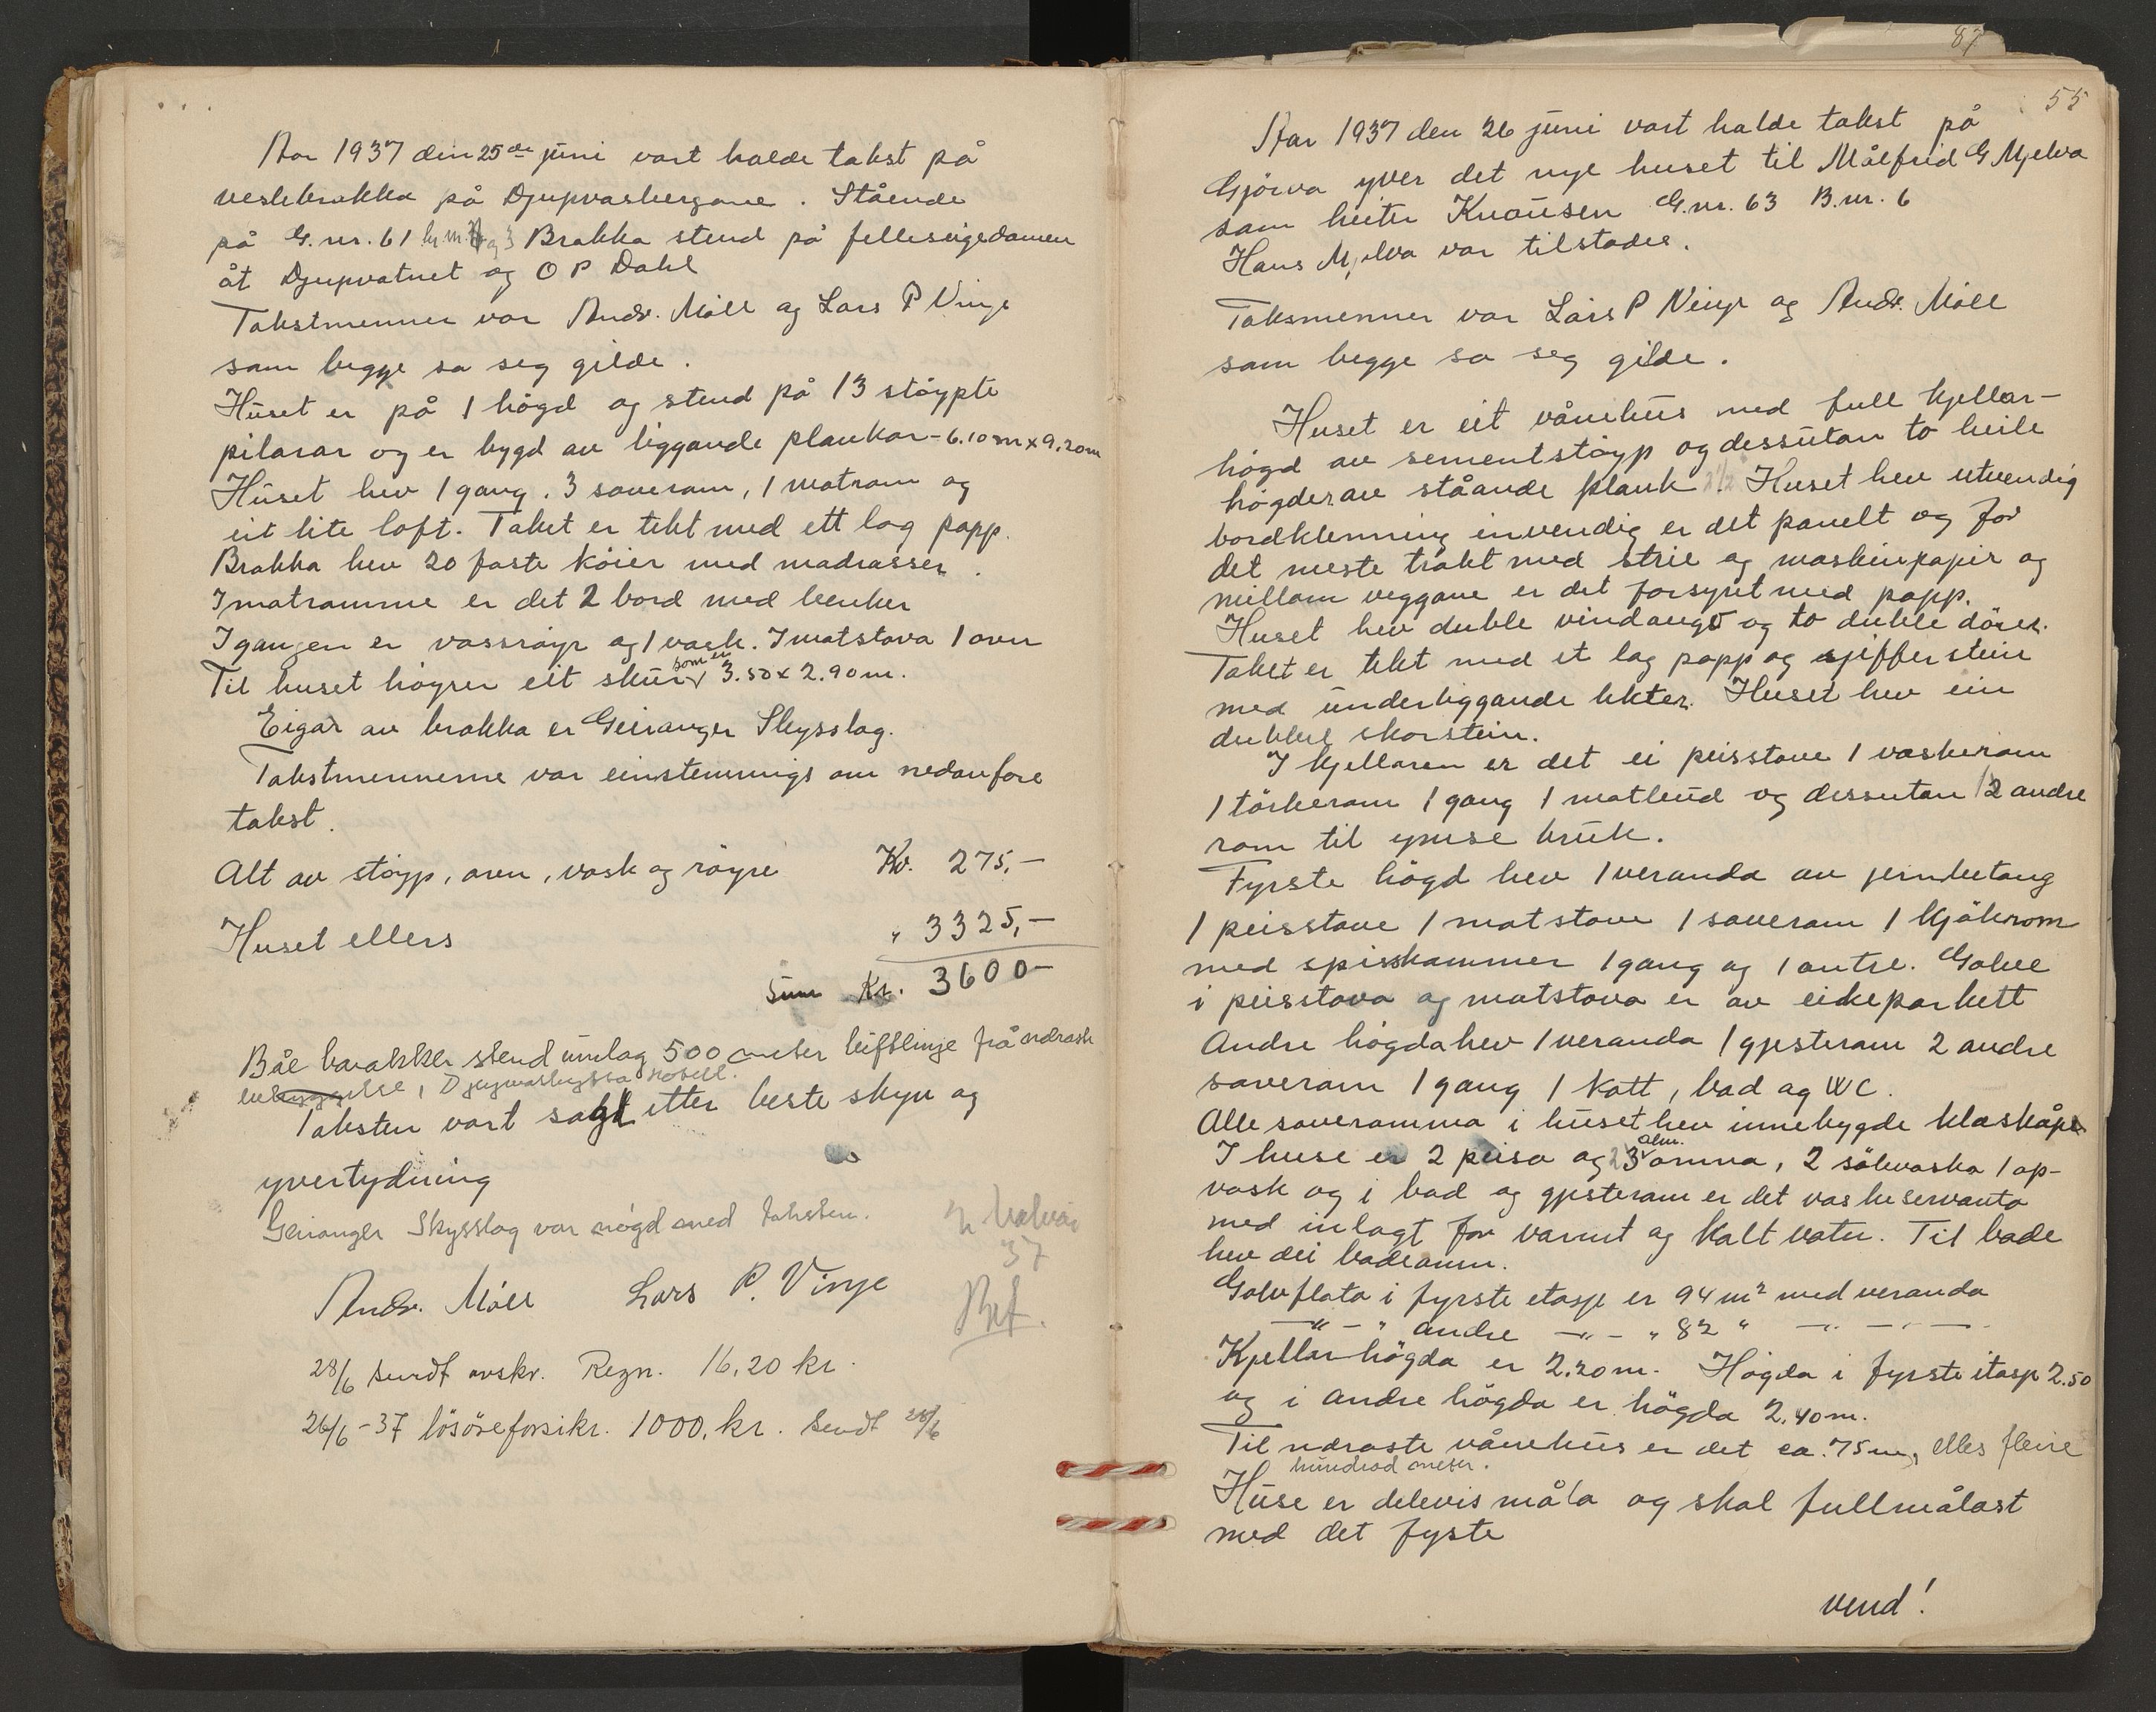 Aar 1937 den 25de juni vart halde takst på
veslebrakka på Djupvasbergane. Stående
på G.nr. 61 br.nr. og 3 Brakka stend på felleseigedomen
åt Djupvatnet og O P Dahl
Takstmenner var Andr. Möll og Lars P Vinje
som begge sa seg gilde.
Huset er på 1 högd og stend på 13 stöypte
pilarar og er bygd av liggande plankar - 6.10 m x 9.20 m
Huset hev 1 gang, 3 soverom, 1 matrom og
eit lite loft. Taket er tekt med ett lag papp.
Brakka hev 20 faste köier med madrasser.
I matromme er det 2 bord med benker
I gangen er vassröyr og 1 vask. I matstova 1 ovn
Til huset höyrer eit skur som er 3.50 x 2.90 m.
Eigar av brakka er Geiranger Skysslag.
Takstmennerne var einstemmigs om nedanfore
takst.
Alt av stöyp, ovn, vask og röyre Kr. 275,-
Huset ellers " 3325,-
Sum Kr. 3600-
Båe barakker stend umlag 500 meter luftlinje frå næraste
, Djupvasshytta hotell.
Taksten vart sagt etter beste skyn og
yvertydning
Geiranger Skysslag var nögd med taksten.
37
Andr. Möll Lars P. Vinje
28/6 sendt avskr. Regn. 16,20 kr.
26/6-37 lösöreforsikr. 1000, kr. Sendt 28/6
87
55
Aar 1937 den 26 juni vart halde takst på
Gjörva yver det nye huset til Målfrid G Mjelva
som heiter Knausen G.nr. 63 B.nr. 6
Hans Mjelva var tilstades.
Taksmenner var Lars P Vinje og Andr. Möll
som begge sa seg gilde.
Huset er eit vånehus med full kjellar-
högd av sementstöyp og dessutan to heile
högder av ståande plank 2½ Huset hev utvendig
bordklenning invendig er det panelt og for
det meste trakt med strie og maskinpapir og
millom veggane er det forsynt med papp.
Huset hev duble vindaugo og to duble dörer.
Taket er tekt med et lag papp og sjifferstein
med underliggande lekter. Huset hev ein
dubbel skorstein.
I kjellaren er det ei peisstove 1 vaskerom
1 törkerom 1 gang 1 matbud og dessutan 2 andre
rom til ymse bruk.
Fyrste högd hev 1 veranda av jernbetong
1 peisstove 1 matstove 1 soverom 1 kjökrom
med spisskammer 1 gang og 1 antre. Golve
i peisstova og matstova er av eikeparkett
Andre högda hev 1 veranda 1 gjesterom 2 andre
soverom 1 gang 1 kott, bad og WC.
Alle soveromma i huset hev innebygde klæskåpe
I huse er 2 peisa og 3 alm. omna, 2 sölvaska 1 op-
vask og i bad og gjesterom er det vaskeservanta
med inlagt for varmt og kalt vatn. Til bade
hev dei badeomn.
Golvflata i fyrste etasje er 94 m² med veranda
—"— " andre —"— " 82 " —"— —"—
Kjellarhögda er 2.20 m. Högda i fyrste etasje 2.50
og i andre högda er högda 2.40 m.
Til næraste vånehus er det ca. 75 m, elles fleire
hundrad meter.
Huse er delevis måla og skal fullmålast
med det fyste
vend!